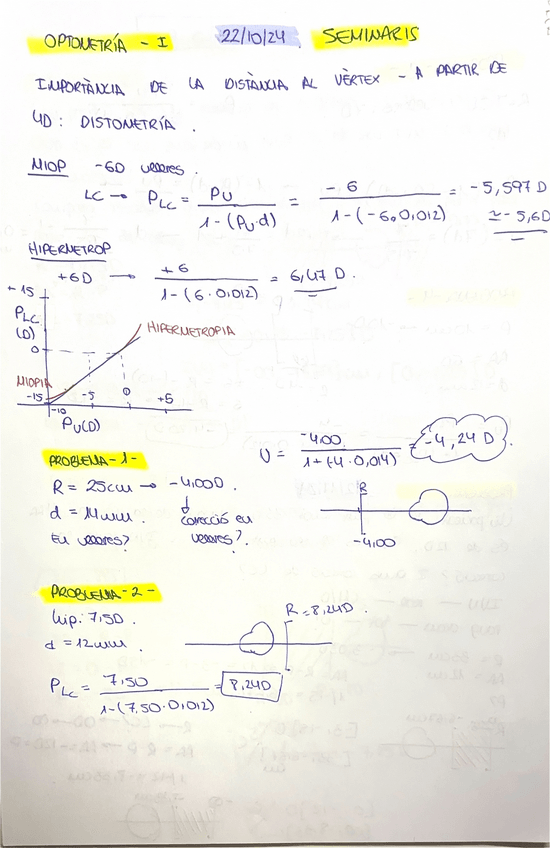 OPTOMETRÍA - I 22/10/24 SEMINARIS
IMPORTÀNCIA DE LA DISTÀNCIA AL VÈRTEX - A PARTIR DE
4D: DISTOMETRÍA.
MIOP -6D ulleres.
LC → P_LC = Pu / 1-(Pu·d) = -6 / 1-(-6·0,012) = -5,597 D
≃ -5,6D
HIPERMETROP
+6D → +6 / 1-(6·0,012) = 6,47 D.
+15
P_LC (D)
HIPERMETROPIA
0
MIOPIA
-15 -5 0 +5
-10
Pu(D)
U = -4,00 / 1+(-4·0,014) = -4,24 D.
PROBLEMA -1-
R = 25cm → -4,00D.
d = 14mm. correcció en
En ulleres? ulleres?
R
-4,00
PROBLEMA -2-
hip: 7,5D
d = 12mm.
R = 8,24D.
P_LC = 7,50 / 1-(7,50·0,012) = 8,24D